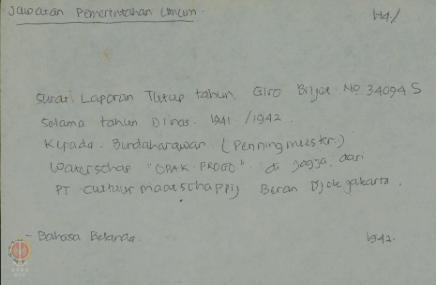 Jawatan Pemerintahan Umum.
Surat Laporan Tutup tahun, Giro Biljet No 34094 S
Selama tahun Dinas 1941 / 1942.
Kepada Bendaharawan (Penningmeester.)
Waterschap "OPAK-PROGO" di Jogja, dari
PT Cultuur maatschappij Beran Djokjakarta.
- Bahasa Belanda.
1942.